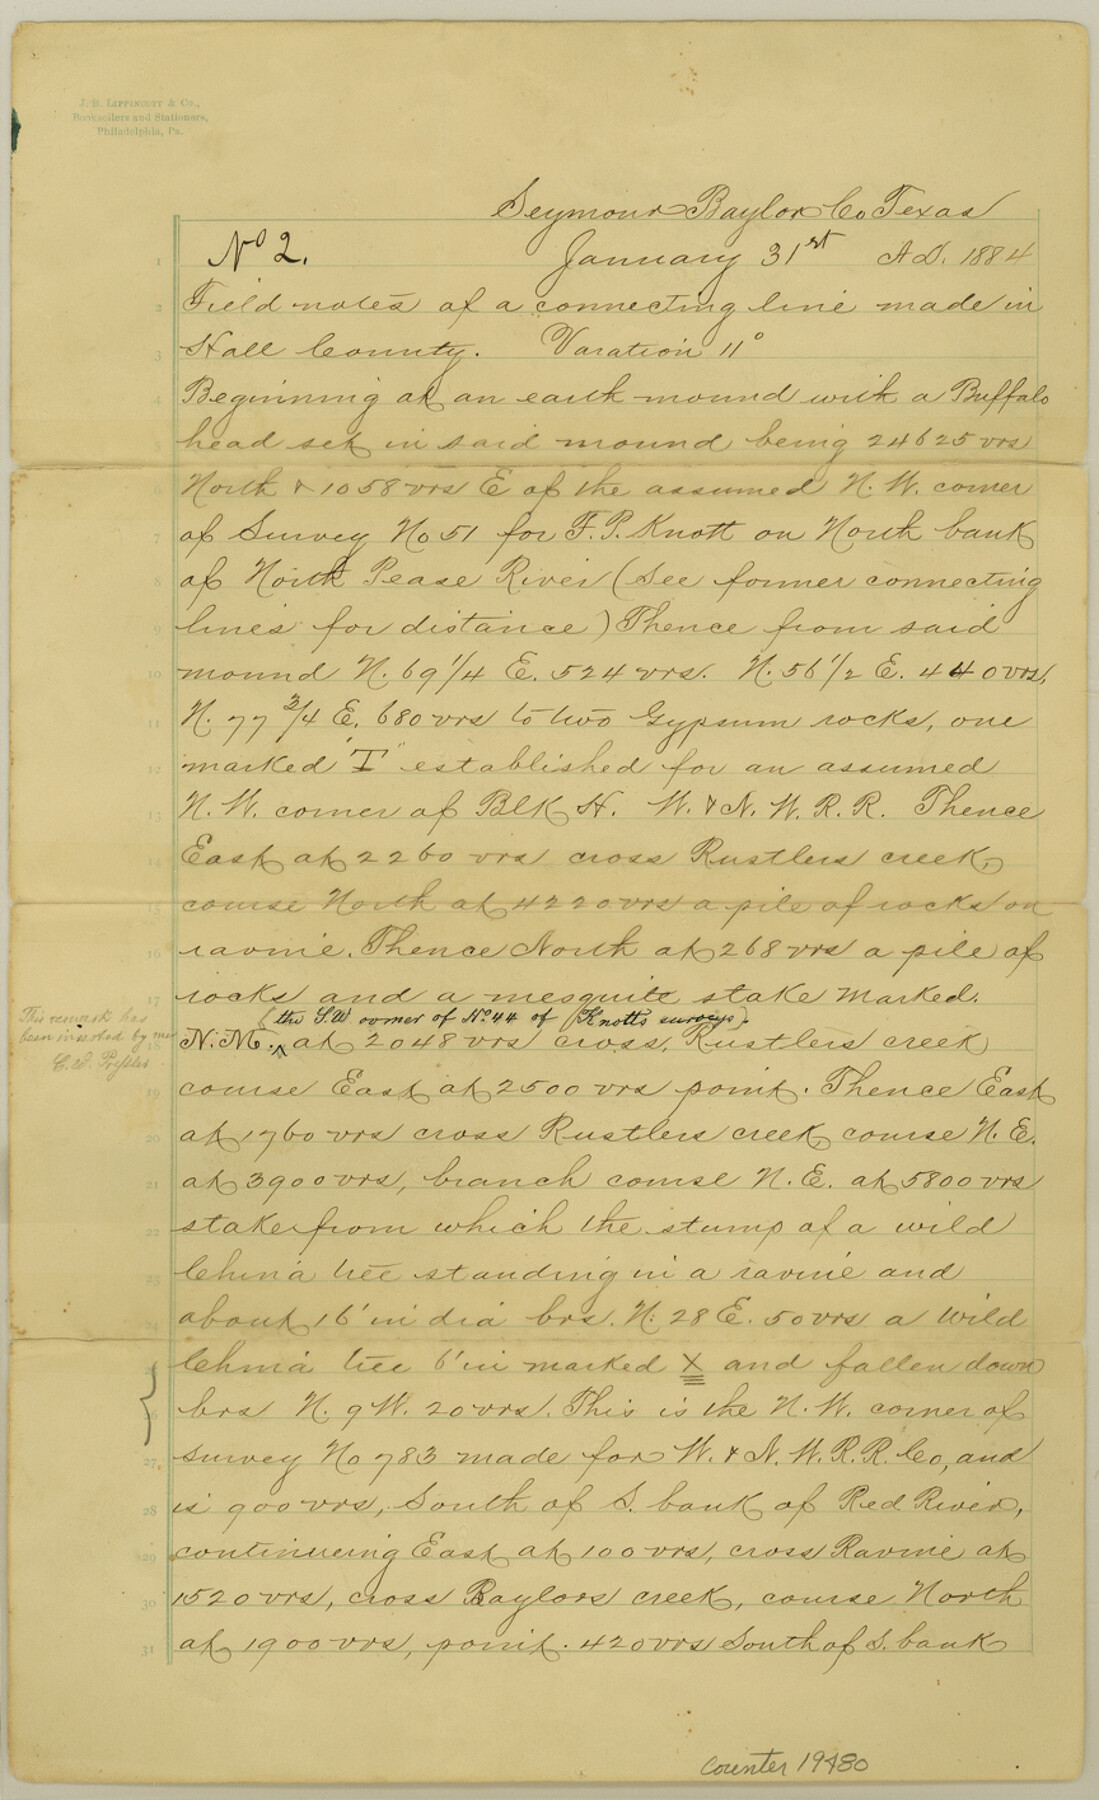 J. B. Lippincott & Co.,
Booksellers and Stationers,
Philadelphia, Pa.
Seymour Baylor Co Texas
No 2. January 31st A.D. 1884
Field notes of a connecting line made in
Hall County. Varation 11°
Beginning at an earth mound with a Buffalo
head set in said mound being 24625 vrs
North & 1058 vrs E of the assumed N. W. corner
of Survey No 51 for F. P. Knott on North bank
of North Pease River (See former connecting
lines for distance) Thence from said
mound N. 69 1/4 E. 524 vrs. N. 56 1/2 E. 440 vrs,
N. 77 3/4 E. 680 vrs to two Gypsum rocks, one
marked "I" established for an assumed
N. W. corner of Blk H. W. & N. W. R. R. Thence
East at 2260 vrs cross Rustlers creek,
course North at 4220 vrs a pile of rocks on
ravine. Thence North at 268 vrs a pile of
rocks and a mesquite stake marked.
(the S.W. corner of No. 44 of (Knotts surveys).
This remark has
been inserted by me
C. W. Pressler
N. M. ^ at 2048 vrs cross, Rustlers creek
course East at 2500 vrs point. Thence East
at 1760 vrs cross Rustlers creek course N. E.
at 3900 vrs, branch course N. E. at 5800 vrs
stake from which the stump of a wild
China tree standing in a ravine and
about 16' in dia brs. N. 28 E. 50 vrs a wild
China tree 6' in marked X and fallen down
brs N. 9 W. 20 vrs. This is the N. W. corner of
survey No 783 made for W. & N. W. R. R. Co, and
is 900 vrs, South of S. bank of Red River,
continueing East at 100 vrs, cross Ravine at
1520 vrs, cross Baylors creek, course North
at 1900 vrs, point. 420 vrs South of S. bank
counter 19480